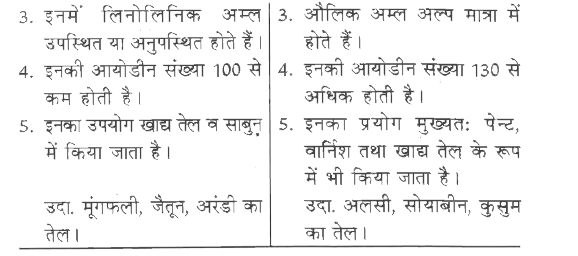 3. इनमें लिनोलिनिक अम्ल
उपस्थित या अनुपस्थित होते हैं।
4. इनकी आयोडीन संख्या 100 से
कम होती है।
5. इनका उपयोग खाद्य तेल व साबुन
में किया जाता है।
उदा. मूंगफली, जैतून, अरंडी का
तेल।
3. औलिक अम्ल अल्प मात्रा में
होते हैं।
4. इनकी आयोडीन संख्या 130 से
अधिक होती है।
5. इनका प्रयोग मुख्यतः पेन्ट,
वार्निश तथा खाद्य तेल के रूप
में भी किया जाता है।
उदा. अलसी, सोयाबीन, कुसुम
का तेल।